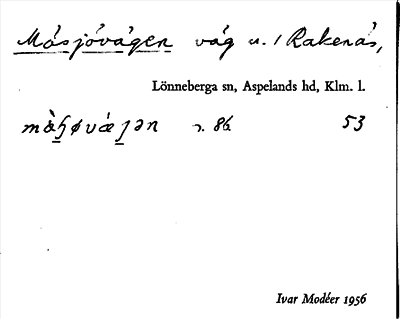 Måsjövägen väg n. / Rakenäs,
Lönneberga sn, Aspelands hd, Klm. l.
s. 86 53
Ivar Modéer 1956